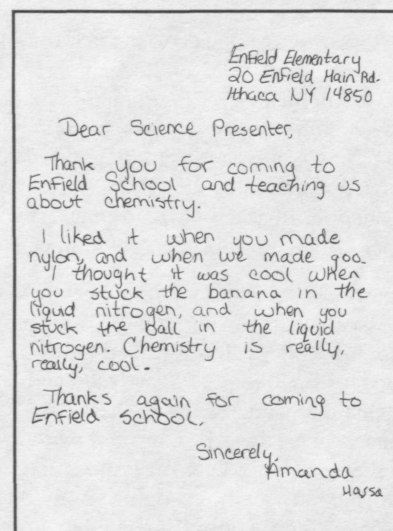 Enfield Elementary
20 Enfield Main Rd.
Ithaca NY 14850
Dear Science Presenter,
Thank you for coming to
Enfield School and teaching us
about chemistry.
I liked it when you made
nylon, and when we made goo.
I thought it was cool when
you stuck the banana in the
liquid nitrogen, and when you
stuck the ball in the liquid
nitrogen. Chemistry is really,
really, cool.
Thanks again for coming to
Enfield School.
Sincerely,
Amanda